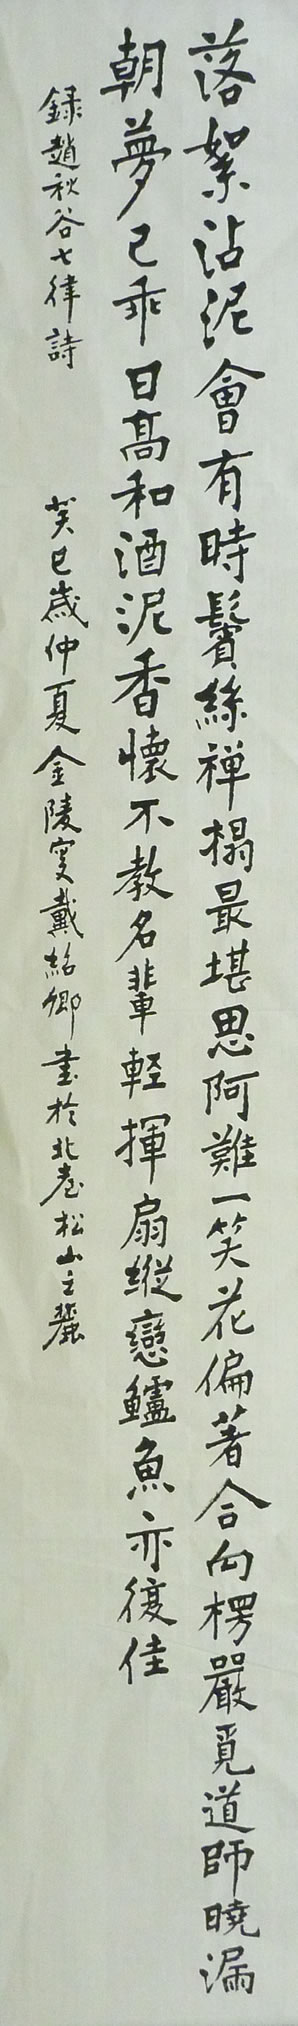 落絮沾泥會有時鬢絲禅榻最堪思阿難一笑花偏著合向楞嚴覓道師曉漏
朝夢已乖日高和酒泥香懷不教名輩軽揮扇縱戀鱸魚亦復佳
録趙秋谷七律詩 癸巳歲仲夏金陵叟戴紹卿書於北臺松山之麓